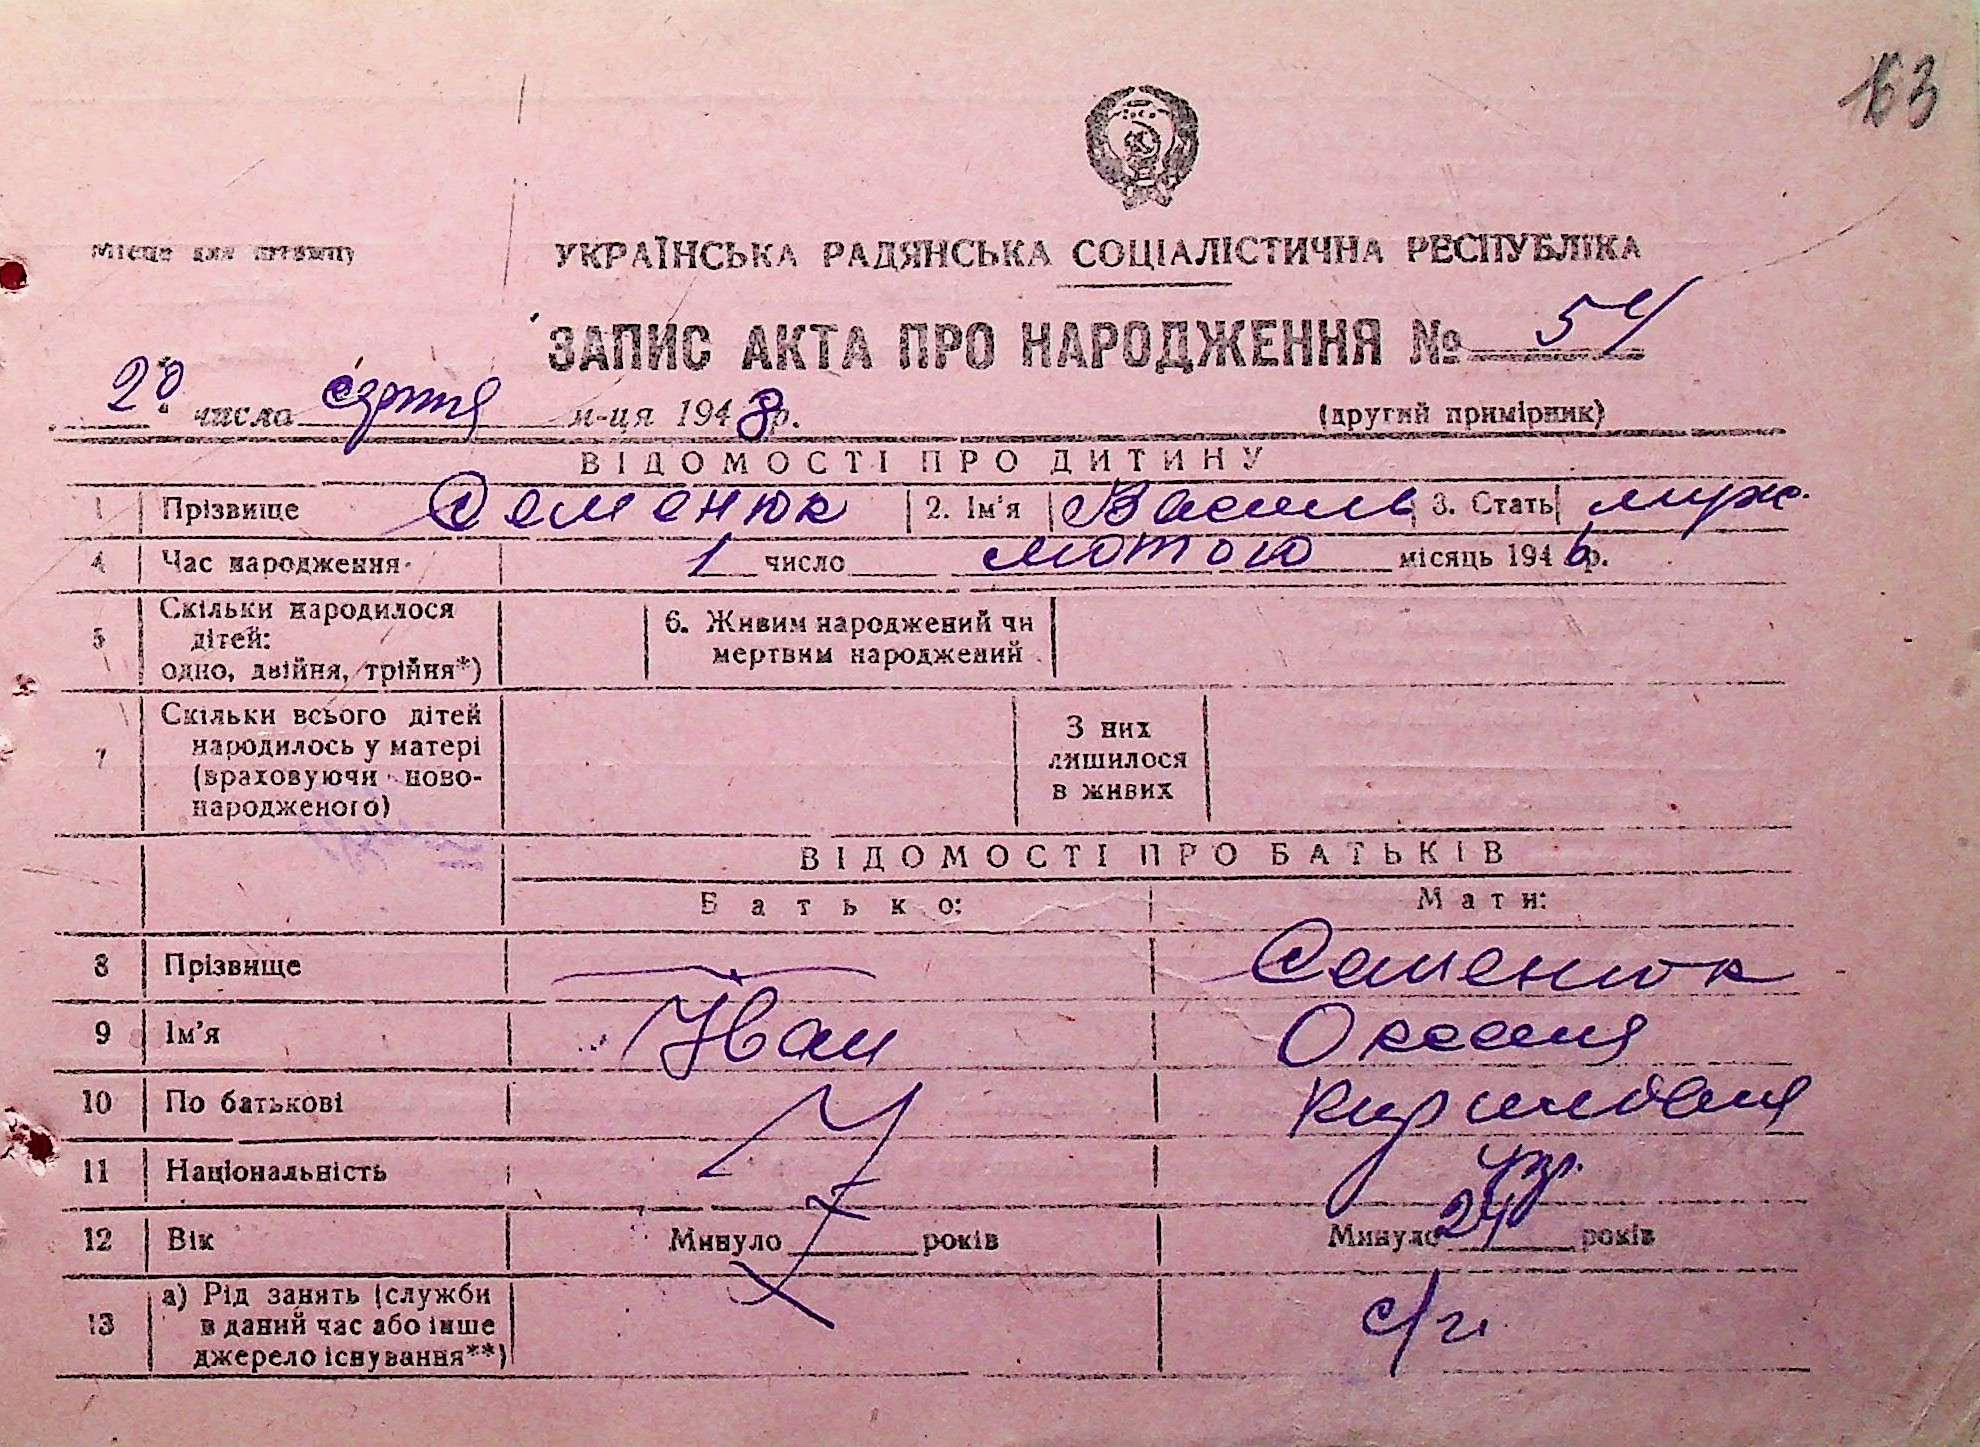 163
Місце для штампу
УКРАЇНСЬКА РАДЯНСЬКА СОЦІАЛІСТИЧНА РЕСПУБЛІКА
ЗАПИС АКТА ПРО НАРОДЖЕННЯ № 54
20 числа серпня м-ця 1948 р.
(другий примірник)
ВІДОМОСТІ ПРО ДИТИНУ
1 Прізвище Семенюк 2. Ім'я Василь 3. Стать муж.
4 Час народження 1 число лютого місяць 1946 р.
5 Скільки народилося дітей: одно, двійня, трійня*)
6. Живим народжений чи мертвим народжений
7 Скільки всього дітей народилось у матері (враховуючи ново-народженого)
З них лишилося в живих
ВІДОМОСТІ ПРО БАТЬКІВ
Батько: Мати:
8 Прізвище Семенюк
9 Ім'я Іван Оксана
10 По батькові Кирилівна
11 Національність укр.
12 Вік Минуло років Минуло 24 років
13 а) Рід занять (служби в даний час або інше джерело існування**) с/г.